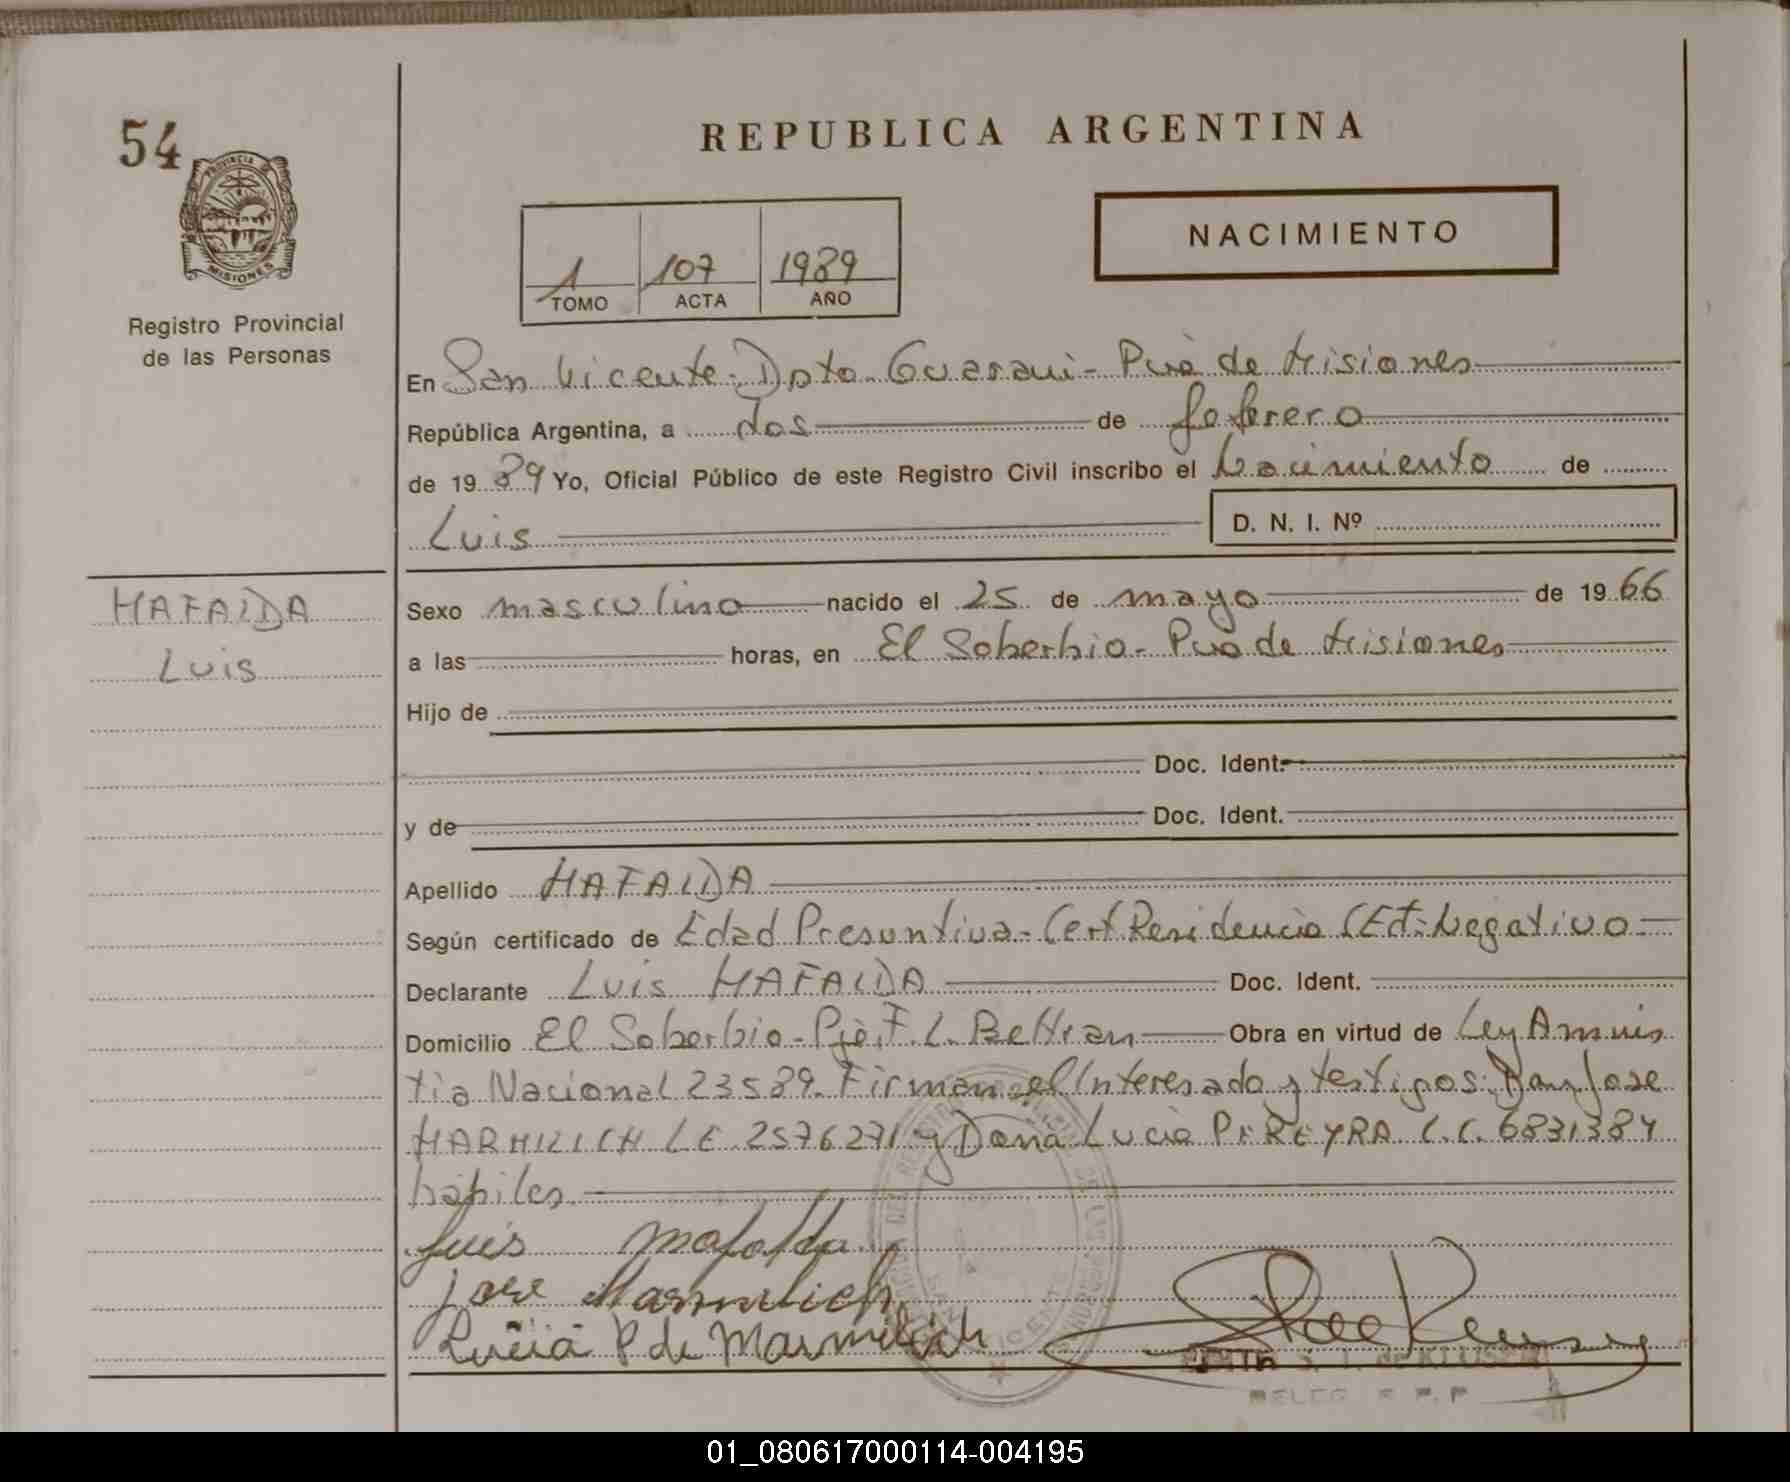 54
PROVINCIA DE
MISIONES
Registro Provincial
de las Personas
REPUBLICA ARGENTINA
1 107 1989
TOMO ACTA AÑO
NACIMIENTO
En San Vicente - Dpto. Guarani - Pcia de Misiones
República Argentina, a dos de febrero
de 1989 Yo, Oficial Público de este Registro Civil inscribo el Nacimiento de
Luis D. N. I. Nº
MAFALDA
Luis
Sexo masculino nacido el 25 de mayo de 1966
a las horas, en El Soberbio - Pcia de Misiones
Hijo de
Doc. Ident.
y de Doc. Ident.
Apellido MAFALDA
Según certificado de Edad Presuntiva - Cert Residencia Negativo
Declarante Luis MAFALDA Doc. Ident.
Domicilio El Soberbio - Pje. F. L. Beltran Obra en virtud de Ley Amnis
tia Nacional 23589. Firman el Interesado y testigos: Don Jose
MARMILICH L E 2576271 y Doña Lucia PEREYRA C.C. 6831384
habiles.
Luis Mafalda
Jose Marmilich
Lucia P de Marmilich
01_080617000114-004195